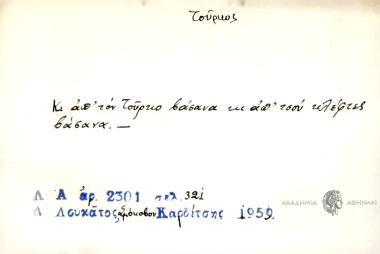 Τοῦρκος
Κι ἀπ' τὸν Τοῦρκο βάσανα κι ἀπ' τσοὺ κλέφτες
βάσανα. —
Λ Α ἀρ. 2301 σελ. 321
Δ Λουκᾶτος, Καρδίτσης 1959
ΑΚΑΔΗΜΙΑ ΑΘΗΝΩΝ